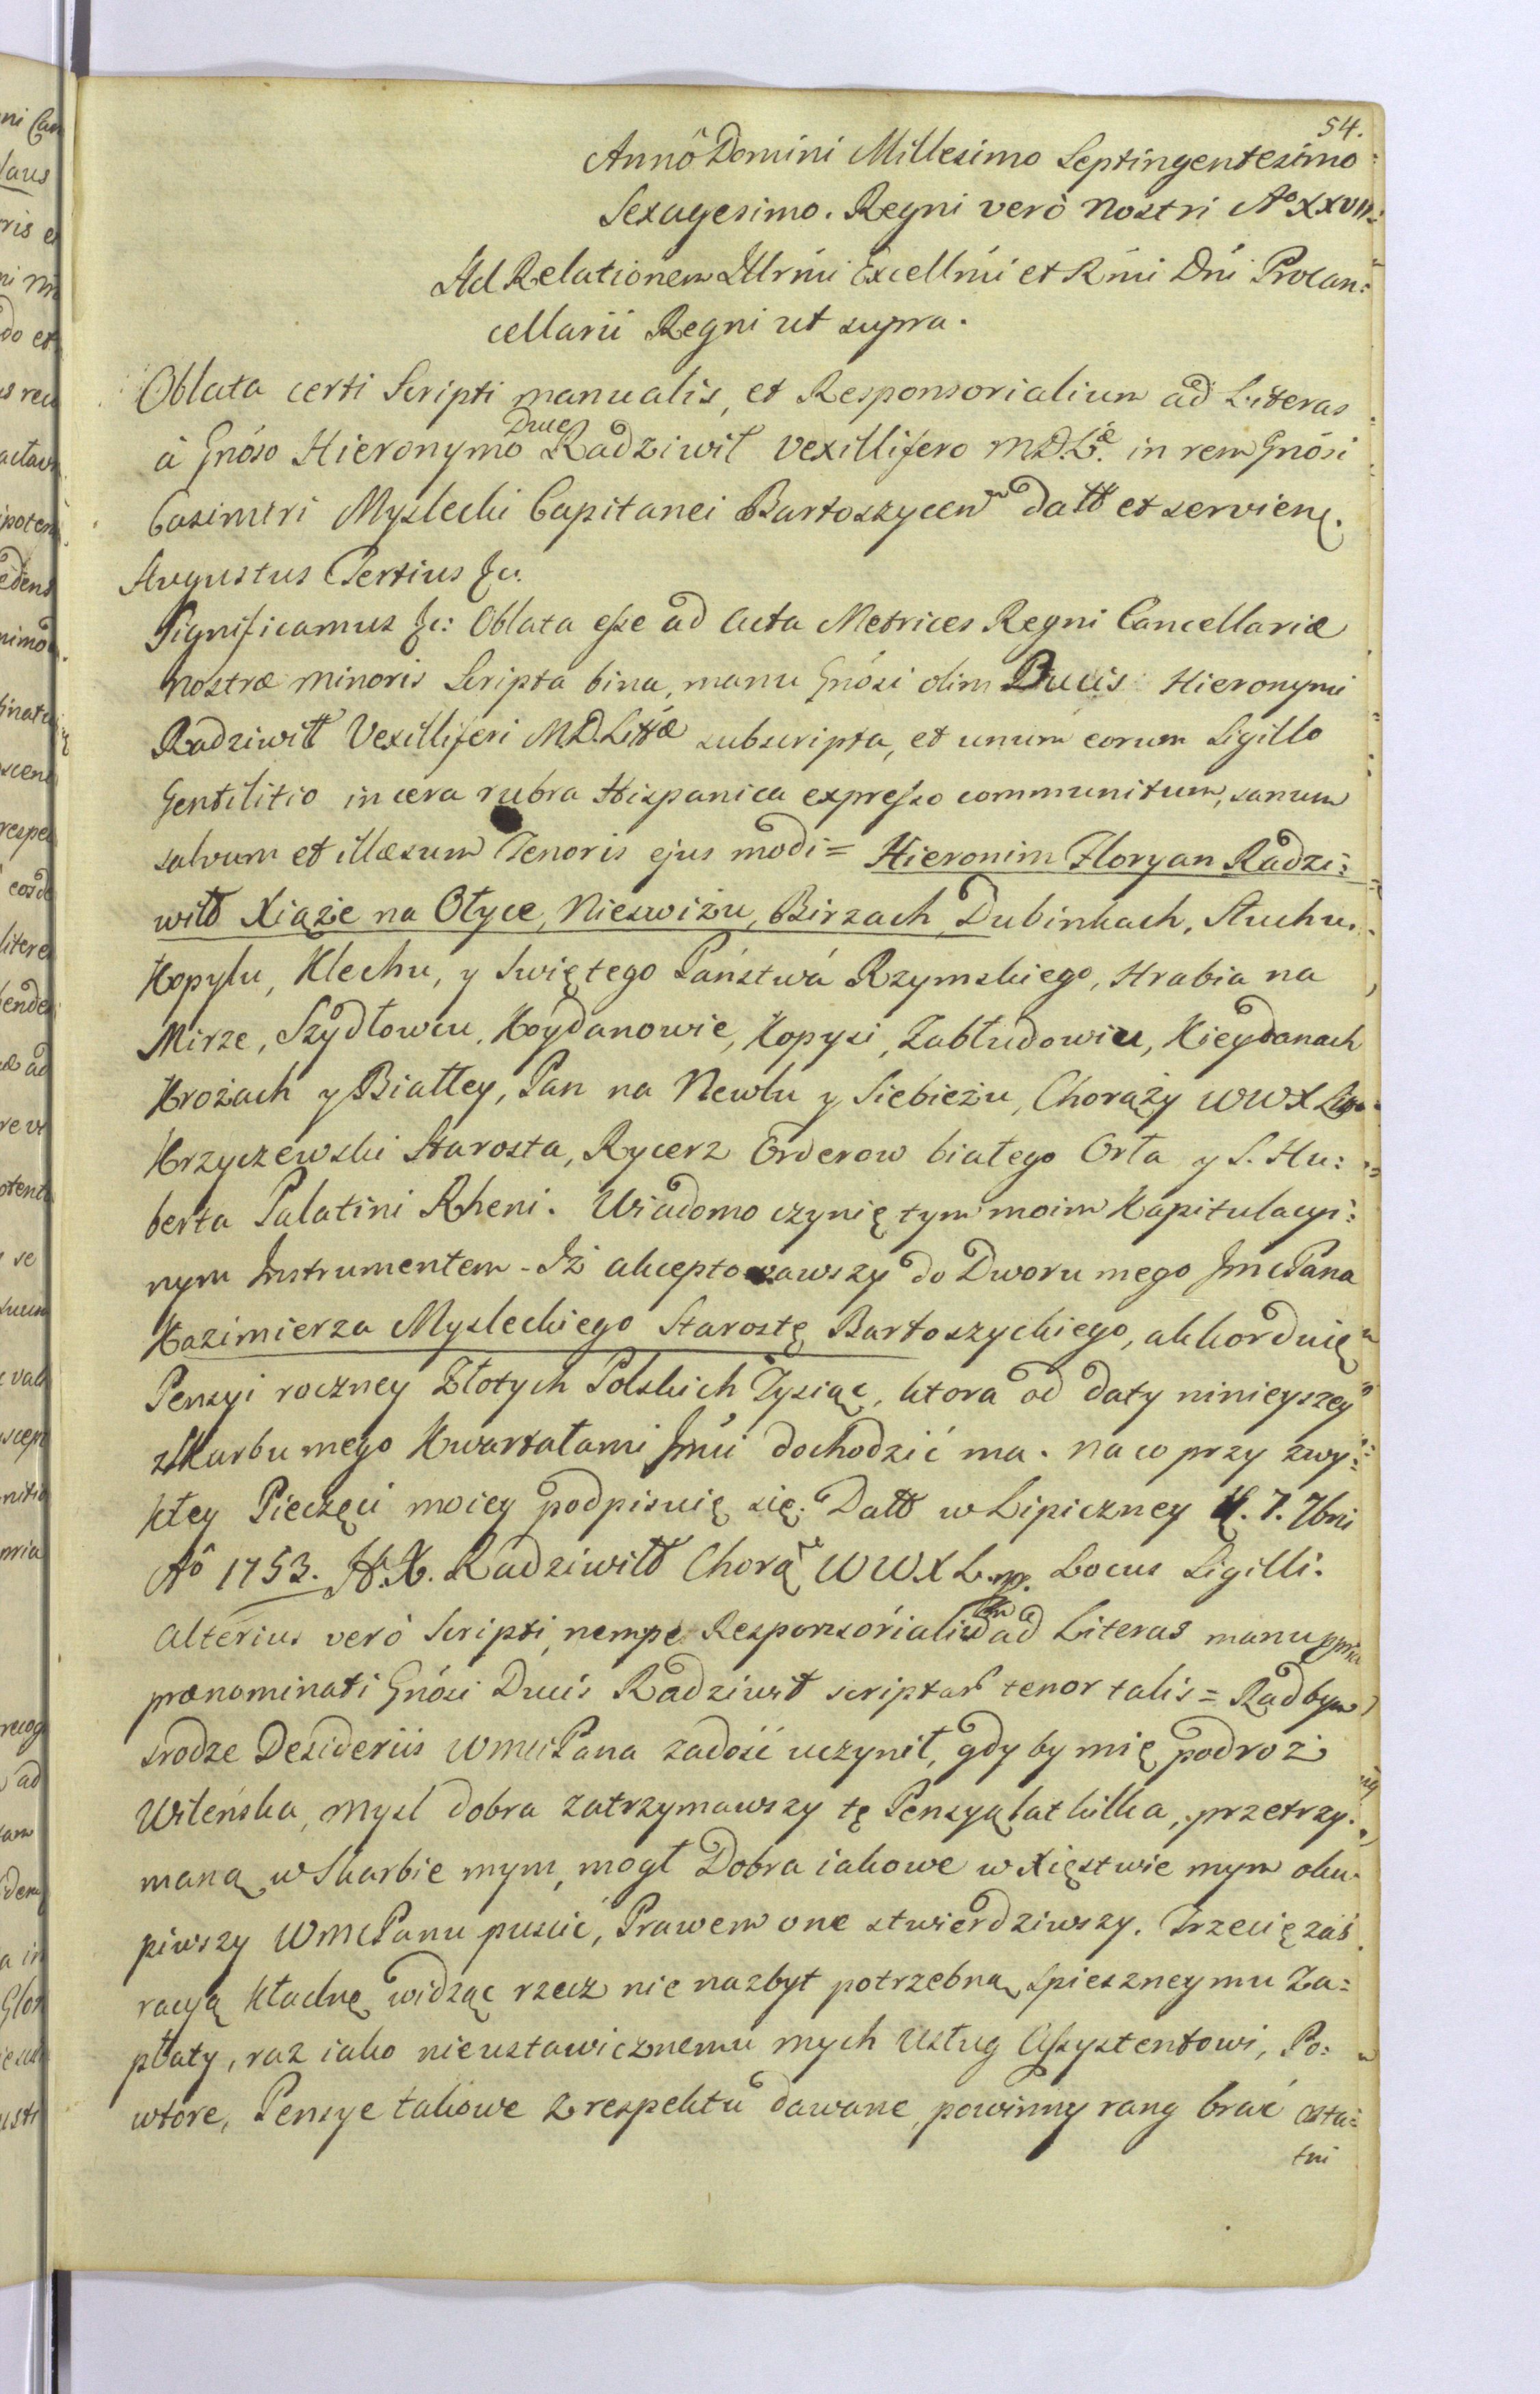 54.
Annô Domini Millesimo Septingentesimo
Sexagesimo. Regni verò Nostri Ao XXVII.
Ad Relationem Illrmi Excellmi et Rmi Dni Procan:
cellarii Regni ut supra.
Oblata certi Scripti manualis, et Responsorialium ad Literas
à Gnoso Hieronymo Duce Radziwił Vexillifero M.D.L. in rem Gnosi
Casimiri Myslecki Capitanei Bartoszycen datt et servien.
Augustus Tertius &c.
Significamus &c: Oblata esse ad Acta Metrices Regni Cancellariæ
Nostræ Minoris Scripta bina, manu Gnosi olim Ducis Hieronymi
Radziwiłł Vexilliferi M.D.Littæ subscripta, et unum eorum Sigillo
Gentilitio in cera rubra Hispanica expresso communitum, sanum
salvum et illæsum Tenoris ejus modi = Hieronim Floryan Radzi:
wiłł Xiąże na Ołyce, Nieswiżu, Birzach, Dubinkach, Słucku,
Kopylu, Klecku, y Swiętego Państwá Rzymskiego, Hrabia na
Mirze, Szydłowcu, Koydanowie, Kopysi, Zabłudowiu, Kieydanach
Krożach y Białłey, Pan na Newlu y Siebieżu, Chorąży WWXL
Krzyczewski Starosta, Rycerz Orderow białego Orła y S. Hu:
berta Palatini Rheni. Wiadomo czynię tym moim Kapitulacyi:
nym Instrumentem. Iż akceptowawszy do Dworu mego JmcPana
Kazimierza Mysleckiego Starostę Bartoszyckiego, akkorduię
Pensyi roczney Złotych Polskich Tysiąc, ktora od daty ninieyszey
z Skarbu mego Kwartałami Jmci dochodzić ma. Na co przy zwy:
kłey Pieczęci moiey podpisuię się. Datt w Lipiczney d. 7. 7bris
Aô 1753. H.X. Radziwiłł Chorą WWXL.mp. Locus Sigilli.
Alterius verò Scripti, nempe Responsorialium ad Literas manu ppria
prænominati Gnosi Ducis Radziwił scriptar tenor talis = Radbym
srodze Desideriis WmciPana zadość uczynił, gdy by mię podroż
Wileńska, mysl dobra zatrzymawszy tę Pensyą lat kilka, przetrzy.
maną w Skarbie mym, mogł Dobra iakowe w Xięstwie mym oku.
piwszy WmcPanu puscić, Prawem one ztwierdziwszy. Trzecię zaś
racyą kładnę widząc rzecz nie nazbyt potrzebną spieszney mu Za:
płaty, raz iako nieustawicznemu mych Usług Assystentowi, Po:
wtore, Pensye takowe z respektu dawane, powinny rang brać osta:
tni